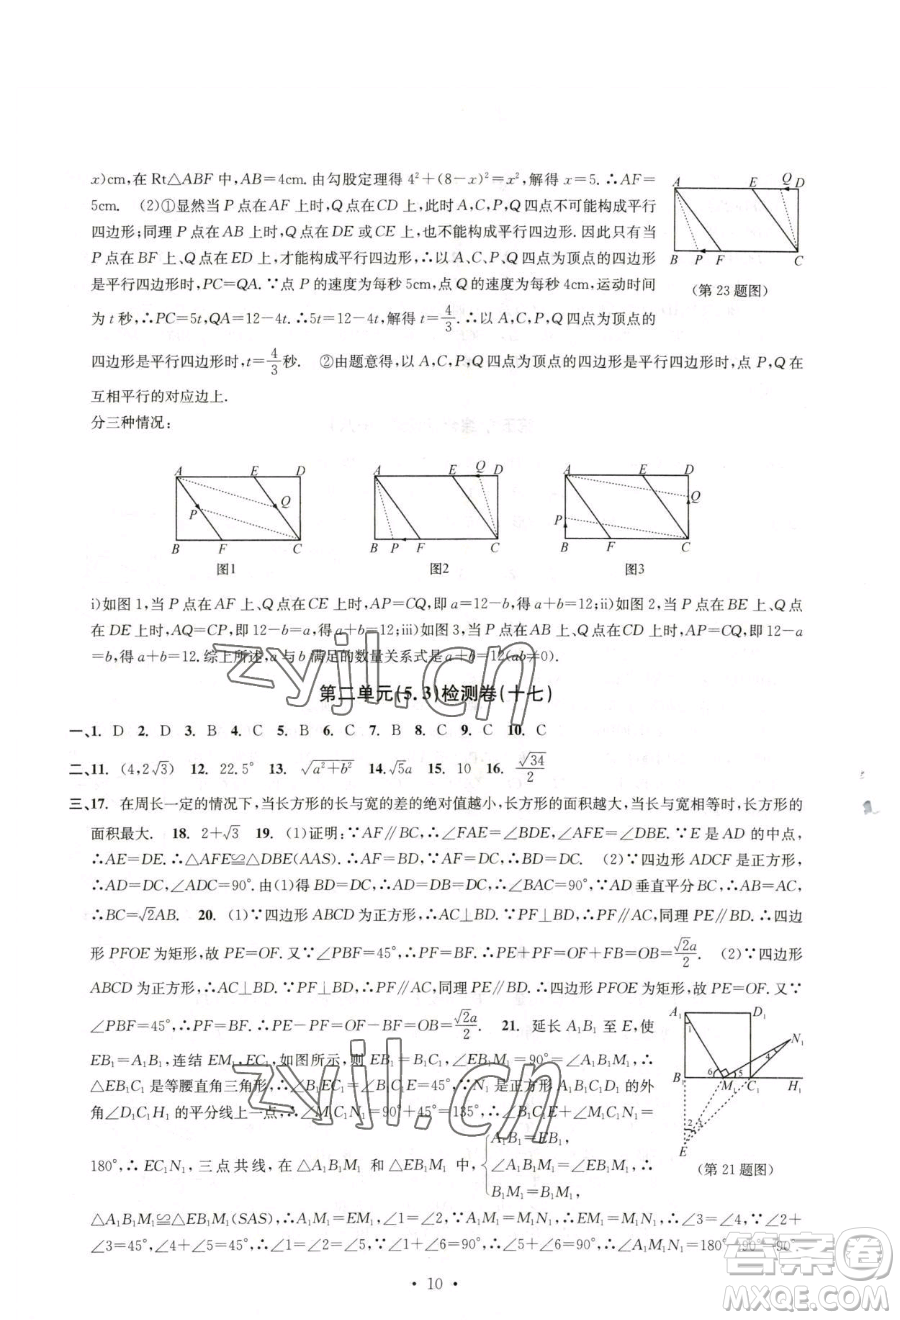 x)cm,在 Rt△ABF 中,AB=4cm. 由勾股定理得 4²+(8-x)²=x²,解得 x=5. ∴AF=
5cm. (2)①显然当 P 点在 AF 上时,Q 点在CD 上,此时 A,C,P,Q 四点不可能构成平行
四边形;同理 P 点在 AB 上时,Q 点在 DE 或 CE 上,也不能构成平行四边形. 因此只有当
P 点在 BF 上、Q 点在ED 上时,才能构成平行四边形,∴以 A、C、P、Q 四点为顶点的四边
形是平行四边形时,PC=QA. ∵点 P 的速度为每秒 5cm,点 Q 的速度为每秒 4cm,运动时间
为 t 秒,∴PC=5t,QA=12-4t. ∴5t=12-4t,解得 t=4/3. ∴以 A,C,P,Q 四点为顶点的
四边形是平行四边形时,t=4/3秒. ②由题意得,以 A,C,P,Q 四点为顶点的四边形是平行四边形时,点 P,Q 在
互相平行的对应边上.
A E Q D
B P F C
(第 23题图)
分三种情况:
A E D
P Q
B F C
图1
A E Q D
B P F C
图2
A E D
P Q
B F C
图3
i)如图 1,当 P 点在 AF 上、Q 点在CE 上时,AP=CQ,即 a=12-b,得 a+b=12;ii)如图 2,当 P 点在 BE 上、Q 点
在 DE 上时,AQ=CP,即 12-b=a,得 a+b=12;iii)如图 3,当 P 点在AB 上、Q 点在CD 上时,AP=CQ,即 12-a
=b,得 a+b=12. 综上所述,a 与 b 满足的数量关系式是 a+b=12(ab≠0).
第二单元(5.3)检测卷(十七)
一、1. D 2. D 3. B 4. C 5. B 6. B 7. B 8. C 9. C 10. C
二、11. (4,2√3) 12. 22.5° 13. √(a²+b²) 14. √5a 15. 10 16. √34/2
三、17. 在周长一定的情况下,当长方形的长与宽的差的绝对值越小,长方形的面积越大,当长与宽相等时,长方形的
面积最大. 18. 2+√3 19. (1)证明:∵AF∥BC,∴∠FAE=∠BDE,∠AFE=∠DBE. ∵E 是 AD 的中点,
∴AE=DE. ∴△AFE≌△DBE(AAS). ∴AF=BD. ∵AF=DC,∴BD=DC. (2)∵四边形 ADCF 是正方形,
∴AD=DC,∠ADC=90°. 由(1)得 BD=DC,∴AD=BD=DC. ∵∠ADC=90°,∴AD 垂直平分 BC,∴AB=AC,
∴BC=√2AB. 20. (1)∵四边形 ABCD 为正方形,∴AC⊥BD. ∵PF⊥BD,∴PF∥AC,同理 PE∥BD. ∴四边
形 PFOE 为矩形,故 PE=OF. 又∵∠PBF=45°,∴PF=BF. ∴PE+PF=OF+FB=OB=√2a/2. (2)∵四边形
ABCD 为正方形,∴AC⊥BD. ∵PF⊥BD,∴PF∥AC,同理 PE∥BD. ∴四边形 PFOE 为矩形,故 PE=OF. 又∵
∠PBF=45°,∴PF=BF. ∴PE-PF=OF-BF=OB=√2a/2. 21. 延长 A₁B₁ 至 E,使
EB₁=A₁B₁,连结 EM₁,EC₁,如图所示,则 EB₁=B₁C₁,∠EB₁M₁=90°=∠A₁B₁M₁,
∴△EB₁C₁ 是等腰直角三角形,∴∠B₁EC₁=∠B₁C₁E=45°,∵N₁ 是正方形 A₁B₁C₁D₁ 的外
角∠D₁C₁H₁ 的平分线上一点,∴∠M₁C₁N₁=90°+45°=135°,∴∠B₁C₁E+∠M₁C₁N₁=
180°,∴EC₁N₁,三点共线,在△A₁B₁M₁ 和△EB₁M₁ 中,
A₁B₁=EB₁,
∠A₁B₁M₁=∠EB₁M₁,∴
B₁M₁=B₁M₁,
A₁ D₁
1 N₁
4
6 5
B₁ M₁ C₁ H₁
2 3
E
(第 21题图)
△A₁B₁M₁≌△EB₁M₁(SAS),∴A₁M₁=EM₁,∠1=∠2,∵A₁M₁=M₁N₁,∴EM₁=M₁N₁,∴∠3=∠4,∵∠2+
∠3=45°,∠4+∠5=45°,∴∠2=∠5,∴∠1=∠5,∵∠1+∠6=90°,∴∠5+∠6=90°,∴∠A₁M₁N₁=180°-90°=90°
• 10 •
zyjl.cn
zyjl.cn
答案圈
MXQE.COM